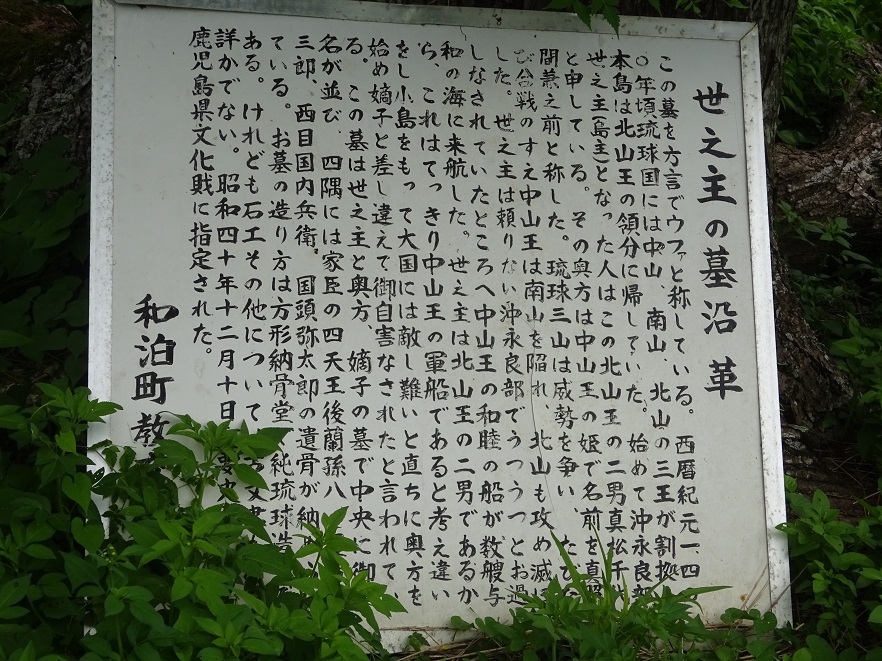 世之主の墓沿革
この墓を方言でウファと称している。西暦紀元一四
〇年頃琉球国には中山、南山、北山の三王が割拠
本島は北山王の領分に帰していた。始めて沖永良部
世之主(島主)となった人はこの北山王の二男真松千
と申している。その奥方は中山王の姫で名前を真照
間兼之前と称した。琉球三山は威勢を争い、たび
び合戦のすえ中山王は南山を陥れ、北山も攻め滅
した。世之主は頼りない沖永良部でうつうつとお過
しなされていたところへ中山王の和睦の船が数艘与
和の海に来航した。世之主は北山王の二男であるか
ら、これはてっきり中山王の軍船であると考え違い
をし小島をもって大国には敵し難いと直ちに奥方を
始め嫡子と差し違えて御自害なされたと言われて
る。この墓は世之主と奥方、嫡子の墓で中央に御
名が並び、四隅には家臣の四天王後蘭孫八
三郎、西目国内兵衛。国頭弥太郎の遺骨が納
ている。お墓の造り方は方形納骨堂 純琉球造
ある。けれども石工その他について 文書
詳かでない。昭和四十年十二月十日
鹿児島県文化財に指定された。
和泊町教